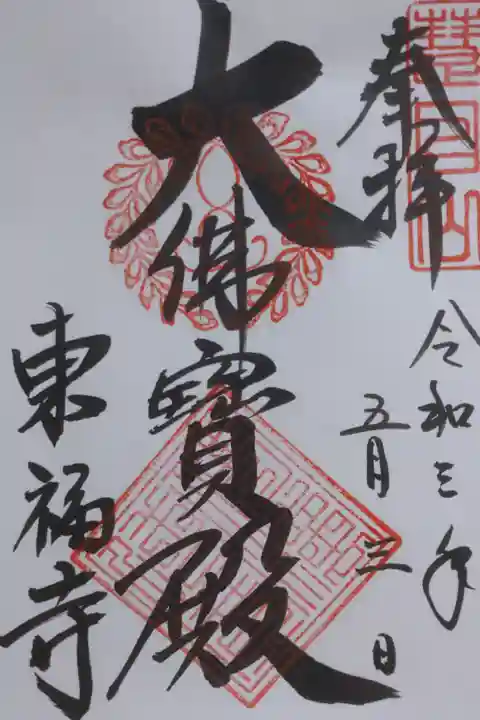 奉拝
慧日山
令和三年
五月三日
大佛寶殿
東福寺